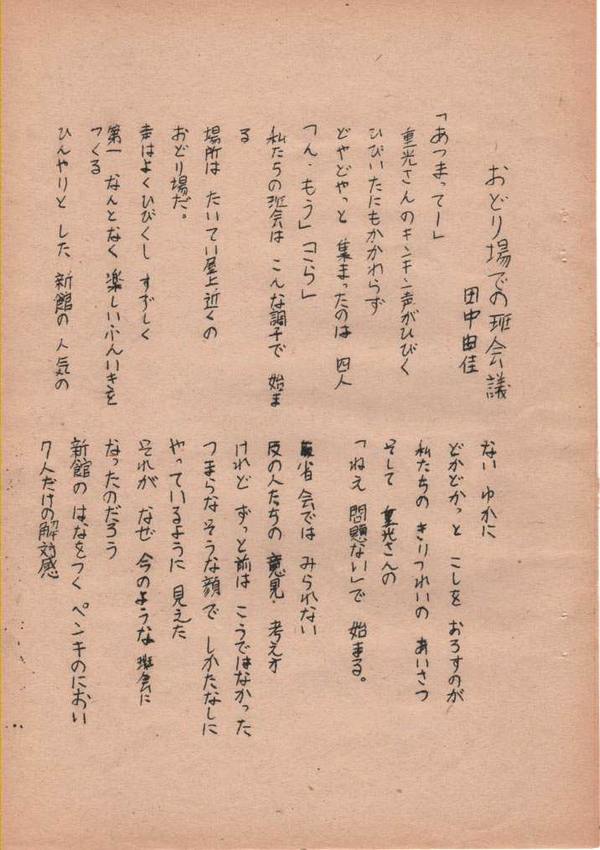 おどり場での班会議
田中由佳
「あつまってー」
重光さんのキンキン声がひびく
ひびいたにもかかわらず
どやどやっと 集まったのは 四人
「ん・もう」「こら」
私たちの班会は こんな調子で 始ま
る
場所は たいてい屋上近くの
おどり場だ。
声はよくひびくし すずしく
第一 なんとなく 楽しいふんいきを
つくる
ひんやりと した 新館の 人気の
ない ゆかに
どかどかっと こしを おろすのが
私たちの きりつれいの あいさつ
そして 重光さんの
「ねえ 問題ない」で 始まる。
反省会では みられない
班の人たちの 意見・考え方
けれど ずっと前は こうではなかった
つまらなそうな顔で しかたなしに
やっているように 見えた
それが なぜ 今のような 班会に
なったのだろう
新館の はなをつく ペンキのにおい
7人だけの解効感